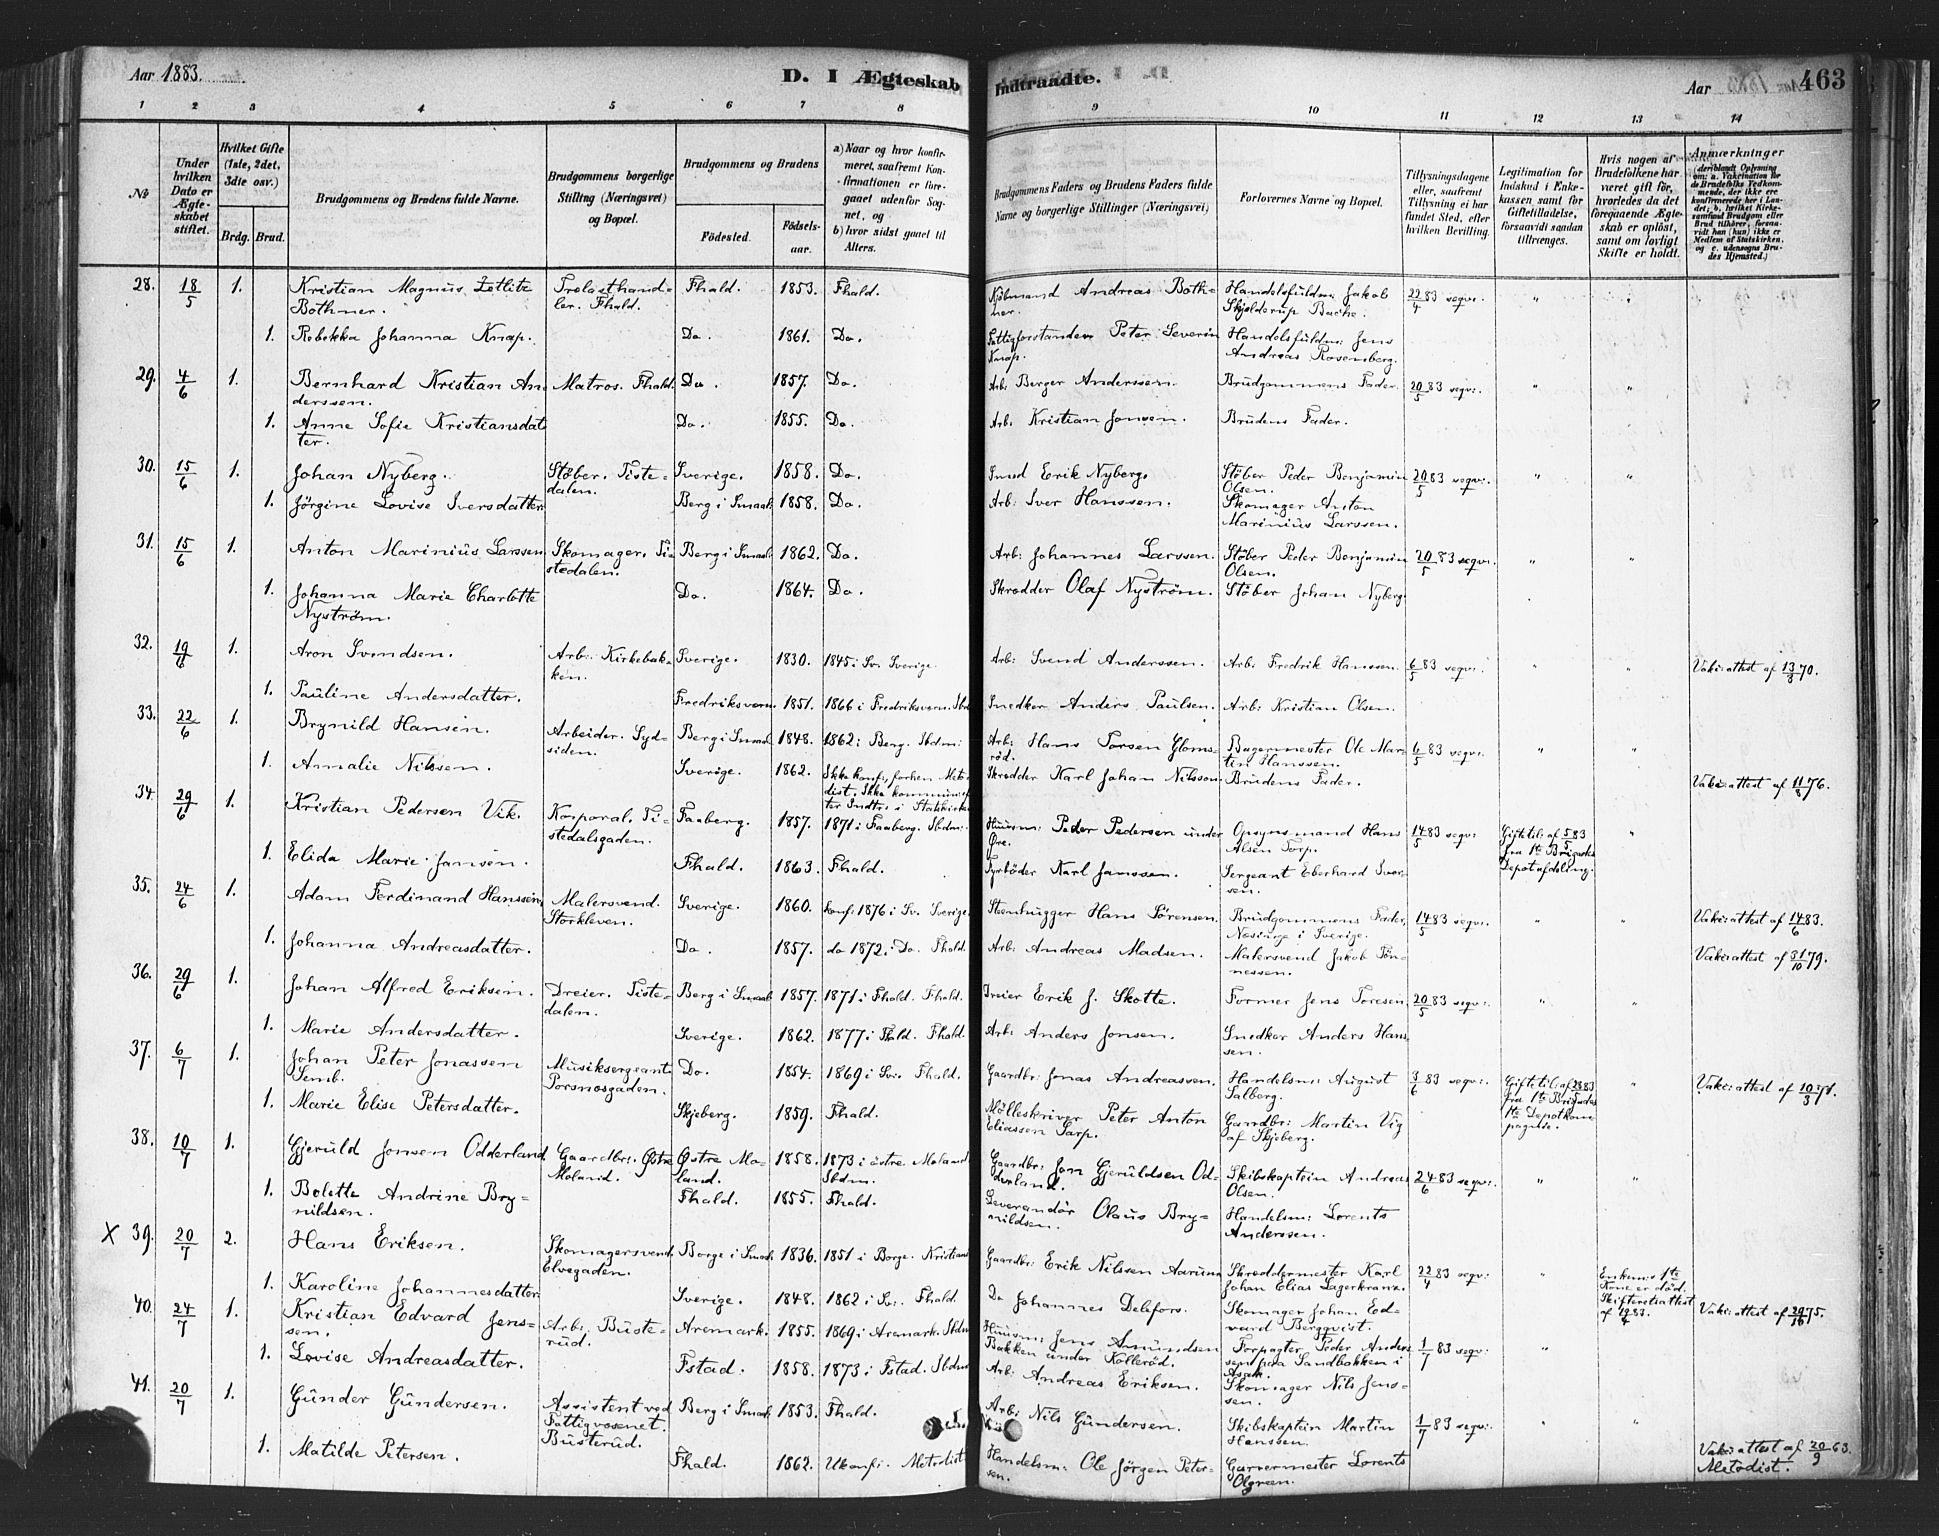 Aar 1883.
D. I Ægteskab Indtraadte.
Aar
463
1 2 3 4 5 6 7 8 9 10 11 12 13 14
No
Under hvilken Dato er Ægteskabet stiftet.
Hvilket Gifte (1ste, 2det, 3die osv.)
Brdg. Brud.
Brudgommens og Brudens fulde Navne.
Brudgommens borgerlige Stilling (Næringsvei) og Bopæl.
Brudgommens og Brudens
Fødested.
Fødselsaar.
a) Naar og hvor konfirmeret, saafremt Konfirmationen er foregaaet udenfor Sognet, og
b) hvor sidst gaaet til Alters.
Brudgommens Faders og Brudens Faders fulde Navne og borgerlige Stillinger (Næringsvei)
Forlovernes Navne og Bopæl.
Tillysningsdagene eller, saafremt Tillysning ei har fundet Sted, efter hvilken Bevilling.
Legitimation for Indskud i Enkekassen samt for Giftetilladelse, forsaavidt saadan tiltrænges.
Hvis nogen af Brudefolkene har været gift før, hvorledes da det foregaaende Ægteskab er opløst, samt om lovligt Skifte er holdt.
Anmærkninger
28. 18/5 1. Kristian Magnus Zetlitz Bothner. Trelasthandler. Fhald. Fhald. 1853. Fhald. Kjøbmand Andreas Bothner. Handelsfuldm: Jakob Skjolderup Bache. 22/4 83 segv:. " "
1. Rebekka Johanna Knap. Do. 1861. Do. Fattigforstander Peter Severin Knap. Handelsfuldm: Jens Andreas Rosenberg.
29. 4/6 1. Bernhard Kristian Anderssen. Matros. Fhald. Do. 1857. Do. Arb: Berger Anderssen. Brudgommens Fader. 20/5 83 segv:. " "
1. Anne Sofie Kristiansdatter. Do. 1855. Do. Arb: Kristian Jonsen. Brudens Fader.
30. 15/6 1. Johan Nyberg. Støber. Tistedalen. Sverige. 1858. Do. Smed Erik Nyberg. Støber Peder Benjamin Olsen. 20/5 83 segv:. " "
1. Jörgine Lovise Iversdatter. Berg i Smaal: 1858. Do. Arb: Iver Hanssen. Skomager Anton Marinius Larssen.
31. 15/6 1. Anton Marinius Larssen Skomager. Tistedalen. Berg i Smaal: 1862. Do. Arb: Johannes Larssen. Støber Peder Benjamin Olsen. 20/5 83 segv:. " "
1. Johanna Marie Charlotte Nyström. Do. 1864. Do. Skrædder Olaf Nyström. Støber Johan Nyberg.
32. 19/6 1. Aron Svendsen. Arb: Kirkebakken. Sverige. 1830. 1845 i Sv. Sverige. Arb: Svend Anderssen. Arb: Fredrik Hanssen. 6/5 83 segv: " " Vakc:attest af 13/8 70.
1. Pauline Andersdatter. Fredriksværn. 1851. 1866 i Fredriksværn. Ibdm Snedker Anders Paulsen. Arb: Kristian Olsen.
33. 22/6 1. Brynild Hansen. Arbeider. Sydsiden. Berg i Smaal: 1848. 1862 i Berg. Ibdm: Arb: Hans Torsen Glomsröd. Bagermester Ole Martin Hanssen. 6/5 83 segv:. " "
1. Amalie Nilssen. Sverige. 1862. Ikke konf:, forhen Metodist. Ikke Skrædder Karl Johan Nilsson Brudens Fader. Vakc:attest af 11/8 76.
34. 29/6 1. Kristian Pedersen Vik. Korporal. Tistedalsgaden. Faaberg. 1857. 1871 i Faaberg. Ibdm: Huusm: Peder Pedersen under Øre. Opsynsmand Hans Olsen Torp. 14/5 83 segv: Giftetil: af 5/5 83 fra 1te Brigades Depotafdeling. "
1. Elida Marie Jansen. Fhald. 1863. Fhald. Fyrböder Karl Janssen. Sergeant Eberhard Iversen.
35. 24/6 1. Adam Ferdinand Hanssen Malersvend. Storkleven. Sverige. 1860. konf: 1876 i Sv. Sverige. Steenhugger Hans Sörensen. Brudgommens Fader, Næsinge i Sverige. 14/5 83 segv:. " " Vakc:attest af 14/6 83.
1. Johanna Andreasdatter. Do. 1857. do 1872 i Do. Fhald. Arb: Andreas Madsen. Malersvend Jakob Tönnessen. Vakc:attest af 31/10 79.
36. 29/6 1. Johan Alfred Eriksen. Dreier. Tistedalen. Berg i Smaal: 1857. 1871 i Fhald. Fhald. Dreier Erik J. Skotte. Former Jens Toresen. 20/5 83 segv:. " "
1. Marie Andersdatter. Sverige. 1862. 1877 i Fhald. Fhald. Arb: Anders Jonsen. Snedker Anders Hanssen.
37. 6/7 1. Johan Peter Jonassen Semb. Musiksergeant. Porsnæsgaden. Do. 1854. 1869 i Sv. Fhald. Gaardbr: Jonas Andreassen. Handelsm: August Salberg. 3/6 83 segv:. Giftetil: af 28/5 83 fra 1te Brigades 1te Depotkompagnie. " Vakc:attest af 10/3 71.
1. Marie Elise Petersdatter. Skjeberg. 1859. Fhald. Mölleskriver Peter Anton Eliassen Sarp. Gaardbr: Martin Vig af Skjeberg.
38. 10/7 1. Gjeruld Jonsen Odderland. Gaardbr: Østre Moland. Østre Moland. 1858. 1873 i östre Moland Ibdm. Gaardbr: Jon Gjeruldsen Odderland. Skibskaptein Andreas Olsen. 24/6 83 segv:. " "
1. Bolette Andrine Brynildsen. Fhald. 1855. Fhald. Leverandör Olaus Brynildsen. Handelsm: Lorents Anderssen.
X 39. 20/7 2. Hans Eriksen. Skomagersvend. Elvegaden. Borge i Smaal: 1836. 1851 i Borge. Kristiania Gaardbr: Erik Nilsen Aarum Skræddermester Karl Johan Elias Lagerkranz. 22/4 83 segv: " Enkem: 1te Kone er död. Skifteretsattest af 19/4 83.
1. Karoline Johannesdatter. Sverige. 1848. 1862 i Sv. Fhald. Do Johannes Delefors. Skomager Johan Edvard Bergqvist. Vakc:attest af 29/10 75.
40. 24/7 1. Kristian Edvard Jenssen. Arb: Busterud. Aremark. 1855. 1869 i Aremark. Ibdm Huusm: Jens Amundsen Bakken under Kolleröd. Forpagter Peder Anderssen paa Sandbakken i Asak. 1/7 83 segv: "
1. Lovise Andreasdatter. Fstad. 1858. 1873 i Fstad. Ibdm Arb: Andreas Eriksen. Skomager Nils Jenssen.
41. 20/7 1. Gunder Gundersen. Assistent ved Fattigvæsenet. Busterud. Berg i Smaal: 1853. Fhald. Arb: Nils Gundersen. Skibskaptein Martin Hanssen. 1/7 83 segv:. " "
1. Matilde Petersen. Fhald. 1862. Ukonf: Metodist Handelsm: Ole Jörgen Petersen. Garvermester Lorents Olgreen. Vakc:attest af 20/9 63. Metodist.